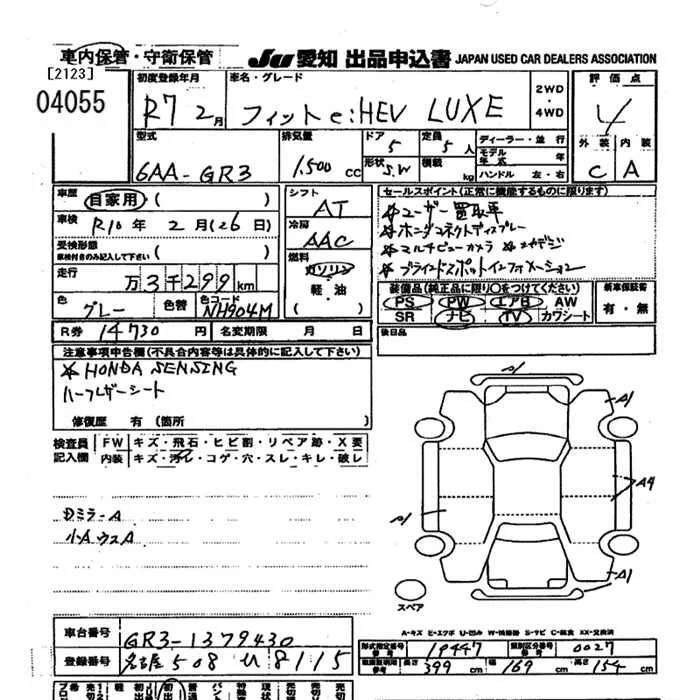 車内保管・守衛保管 JU愛知 出品申込書 JAPAN USED CAR DEALERS ASSOCIATION
[2123]
04055
初度登録年月 車名・グレード 2WD・4WD 評価点
R7 2月 フィットe:HEV LUXE 4
型式 排気量 ドア 5 定員 5人 ディーラー・並行 外装 内装
モデル年式 年
6AA-GR3 1,500cc 形状 S.W 積載 kg ハンドル 左・右 C A
車歴 自家用 ( ) シフト AT セールスポイント(正常に機能するものに限ります)
車検 R10年 2月(26日) 冷房 AAC ☆ユーザー買取車
☆ホンダコネクトディスプレー
受検形態 車検付きのみ記入して下さい ( ) 燃料 ガソリン・軽・油 ☆マルチビューカメラ
☆ブラインドスポットインフォメーション
走行 万3千299km 装備品(純正品に限り○をつけてください) 新車保証書
色 グレー 色替 色コード NH904M PS PW エアB AW 有・無
SR ナビ TV カワシート
R券 14730円 名変期限 月 日 後日品
注意事項申告欄(不具合内容等は具体的に記入して下さい)
☆HONDA SENSING
ハーフレザーシート
修復歴 有 (箇所 )
検査員記入欄 FW キズ・飛石・ヒビ割・リペア跡・X要
内装 キズ・汚レ・コゲ・穴・スレ・キレ・破レ
A1 A1
A4
A1
A1
DミラーA
小A ウスA
スペア
A-キズ E-エクボ U-凹み W-補修跡 S-サビ C-腐食 XX-交換済
車台番号 GR3-1379430
登録番号 名古屋508 8115
型式指定番号 19447 類別区分番号 0027
長さ 399cm 幅 169cm 高さ 154cm